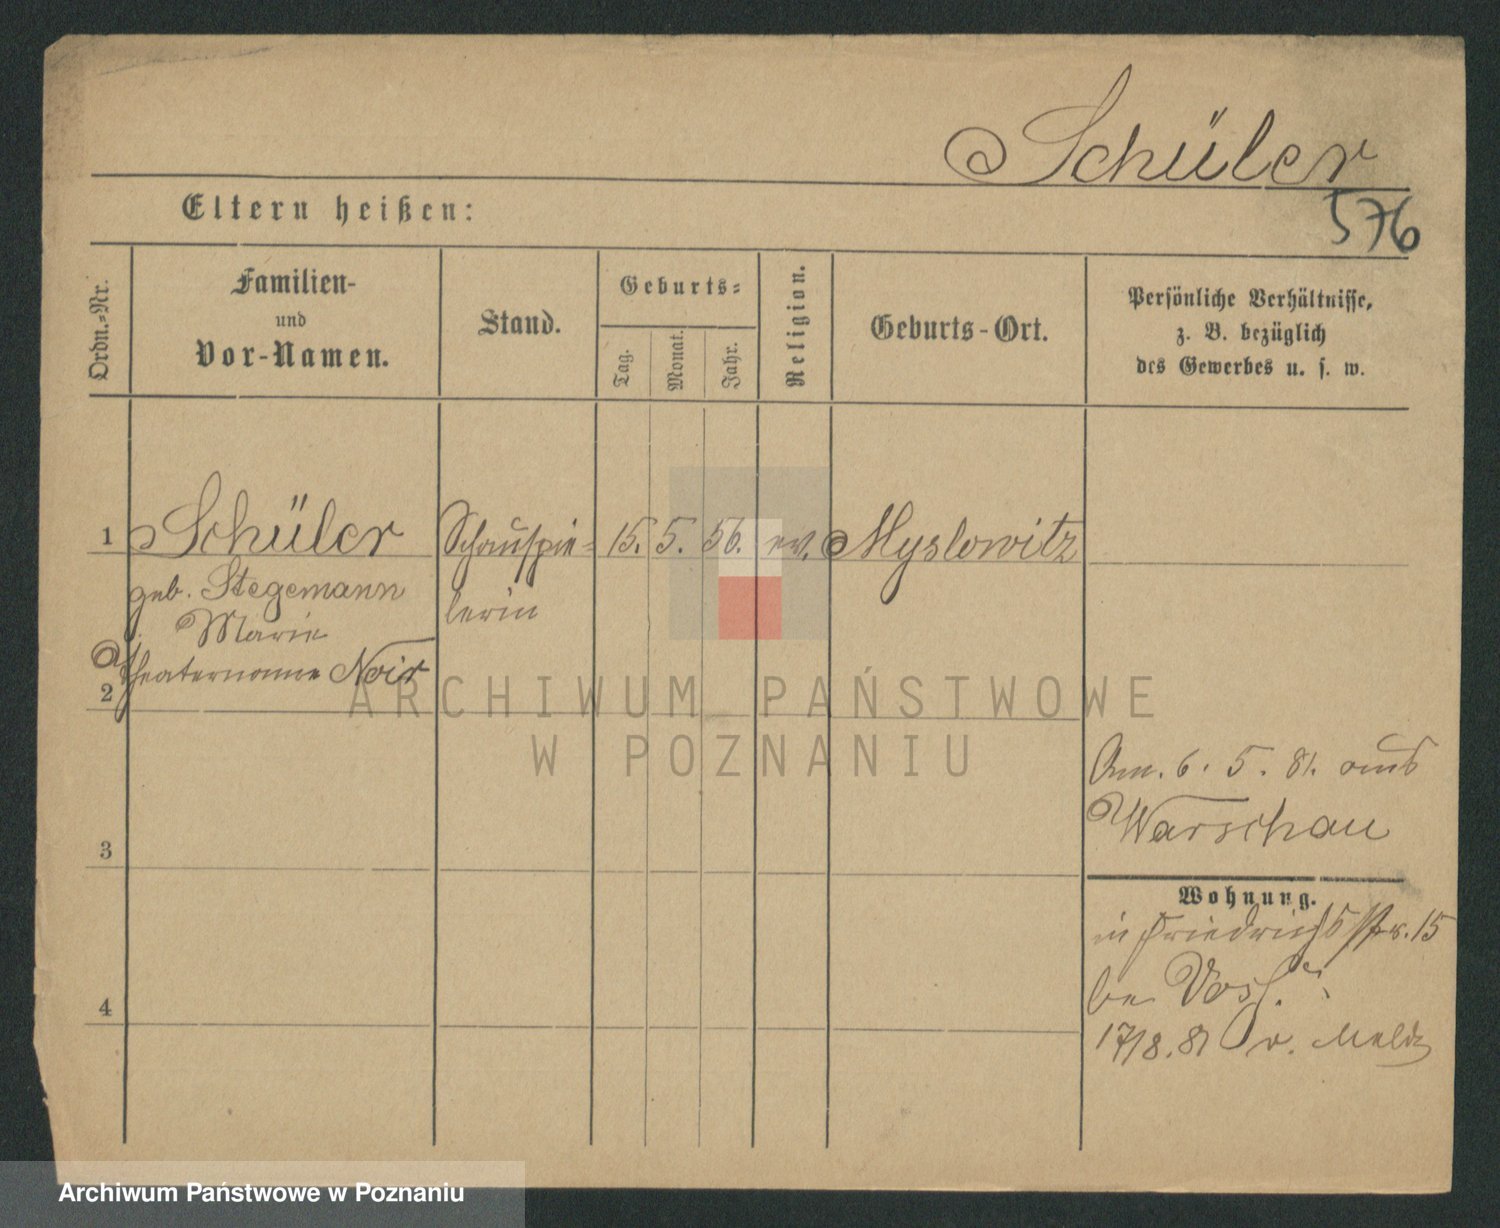 Schüler
576
Eltern heißen:
Ordn.-Nr.
Familien-
und
Vor-Namen.
Stand.
Geburts-
Tag.
Monat.
Jahr.
Religion.
Geburts-Ort.
Persönliche Verhältnisse,
z. B. bezüglich
des Gewerbes u. s. w.
1 Schüler Schauspie= 15. 5. 56. ev. Myslowitz
geb. Stegemann lerin
Marie
Theatername Noir
2
ARCHIWUM PAŃSTWOWE
W POZNANIU
6. 5. 81. aus
Warschau
3
Wohnung.
in Friedrichsstr. 15
4
17/8. 81 v. Meldg
Archiwum Państwowe w Poznaniu